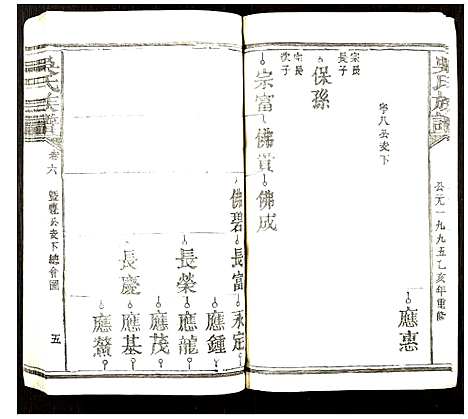 吳氏族譜
公元一九九五乙亥年重修
應惠
寧八公支下
宗長
長子
保孫
宗長
次子
宗富
佛貴
佛成
佛碧
長富
永定
應鍾
長榮
應龍
應茂
長慶
應基
應鰲
吳氏族譜
卷六
公支下總會圖
五